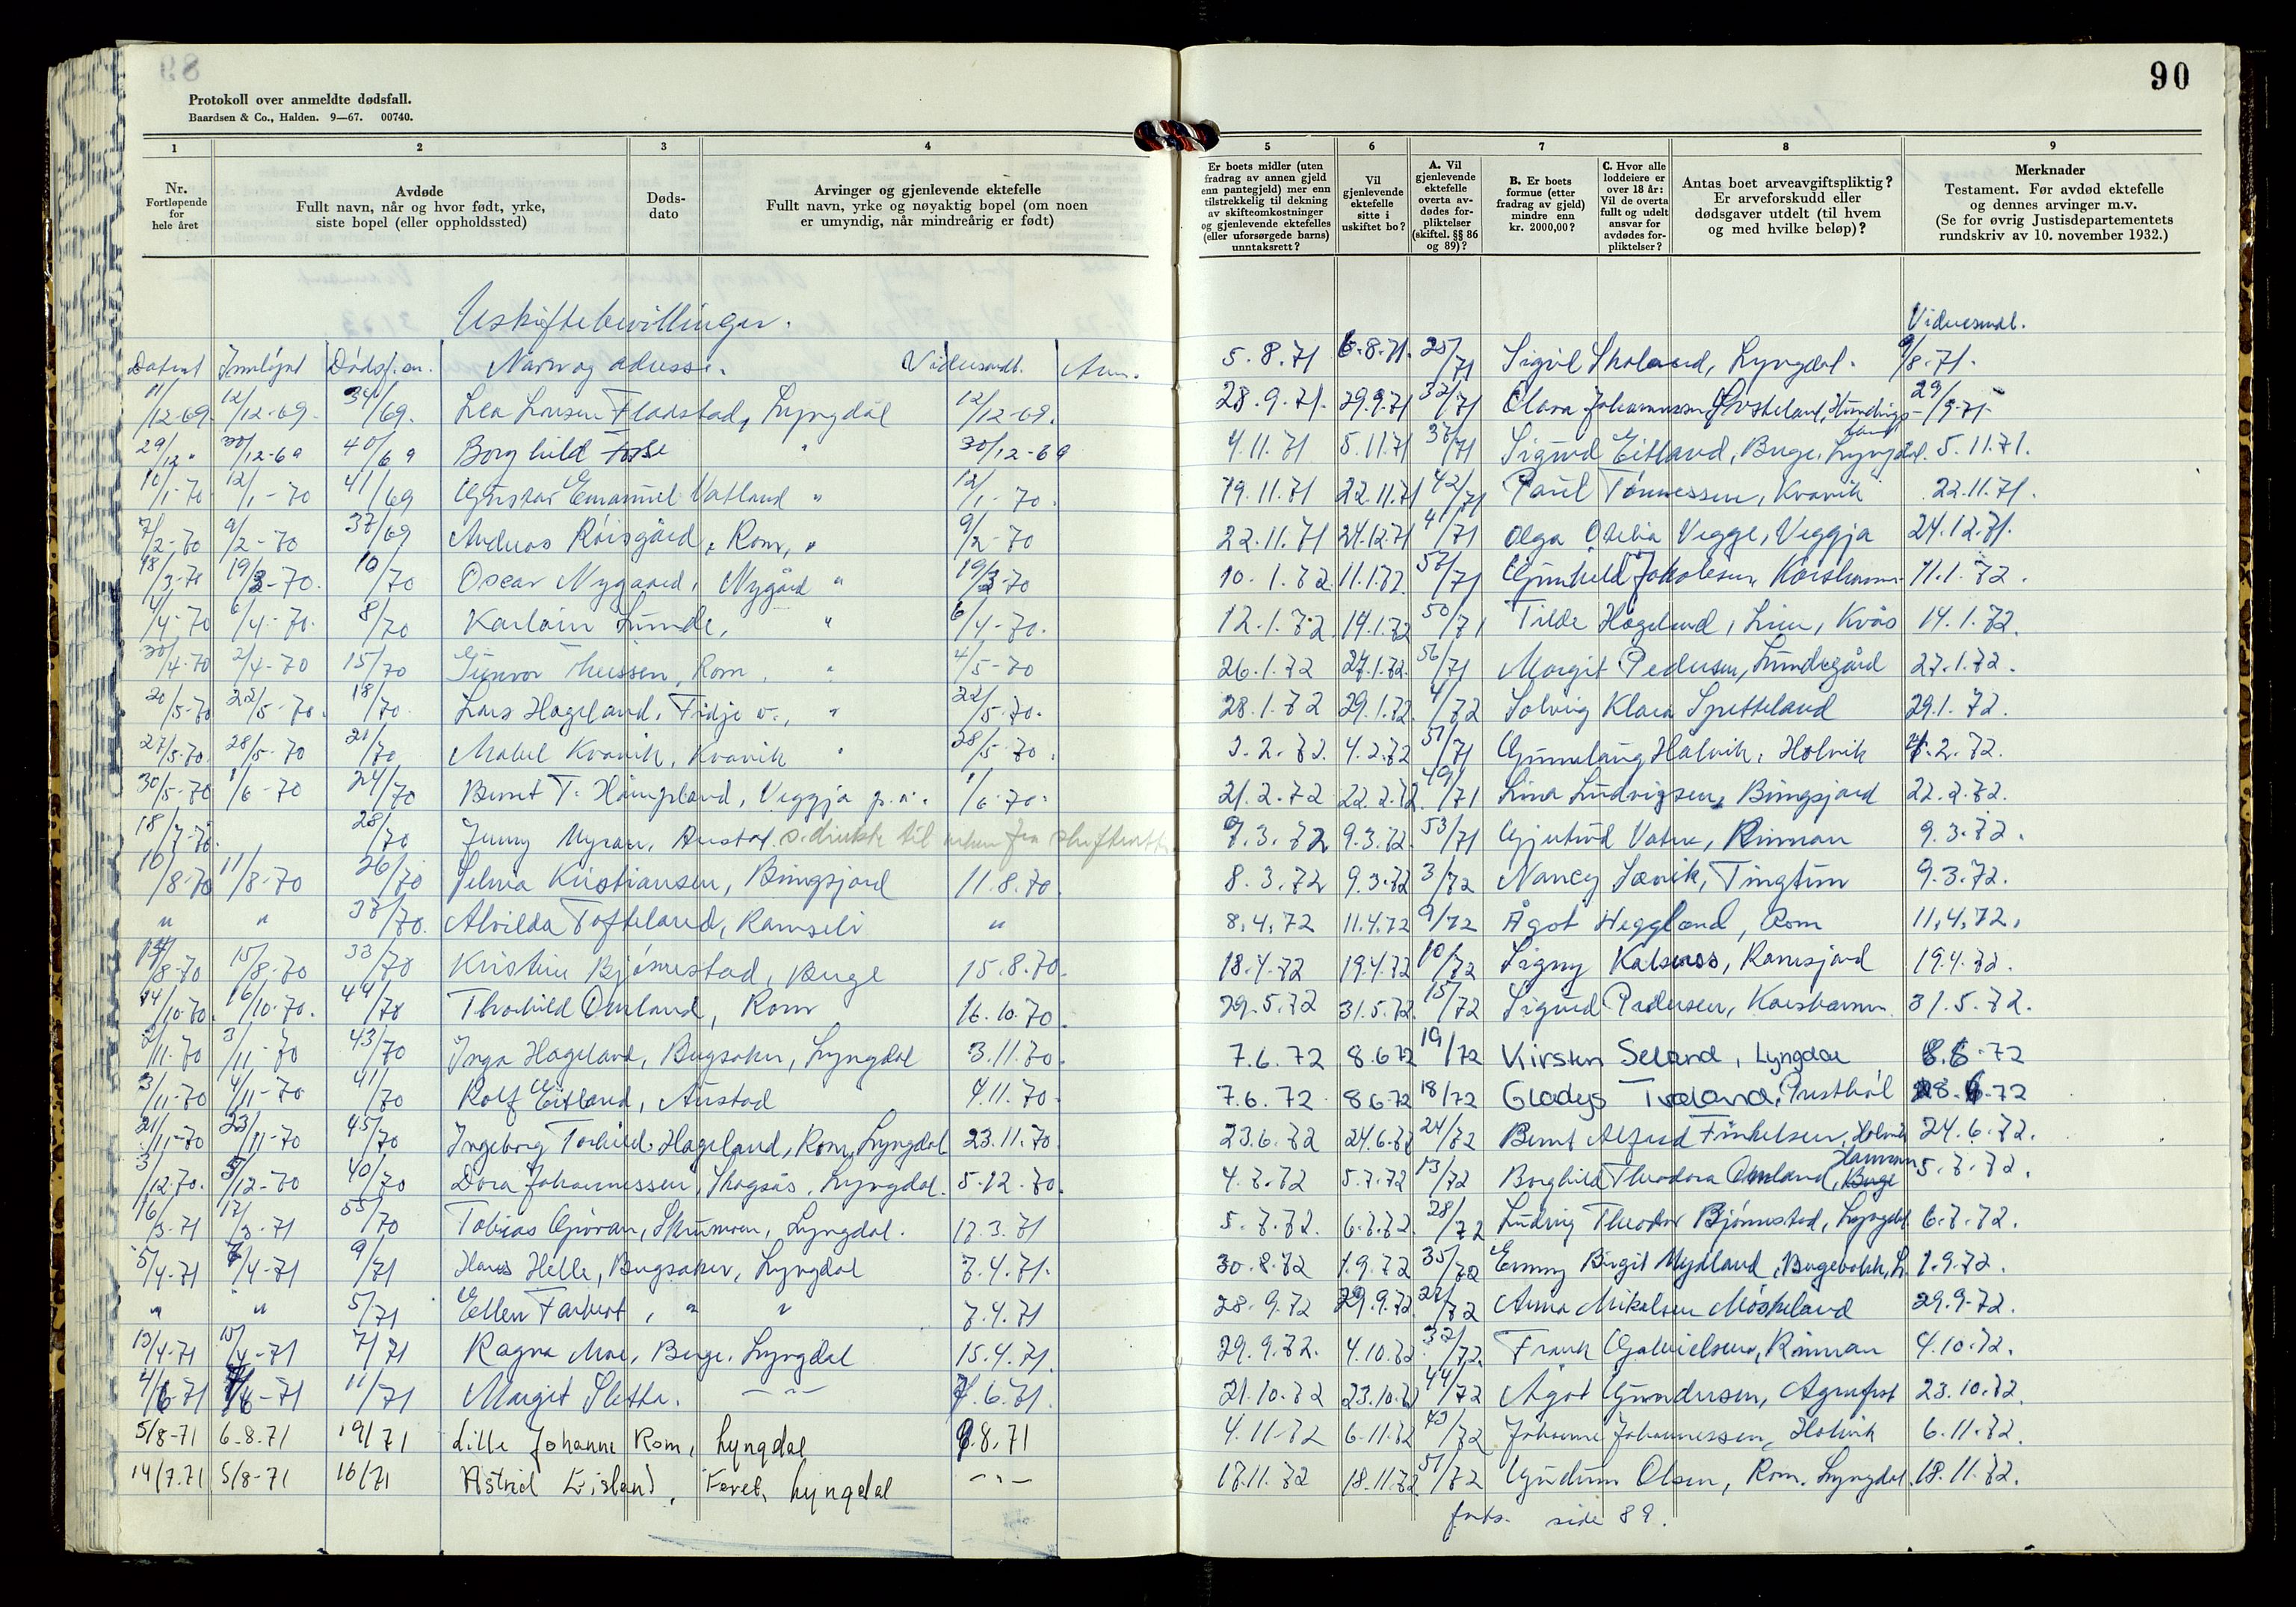 89
Protokoll over anmeldte dødsfall.
Baardsen & Co., Halden. 9—67. 00740.
1 2 3 4
Nr.
Fortløpende
for
hele året
Avdøde
Fullt navn, når og hvor født, yrke,
siste bopel (eller oppholdssted)
Døds-
dato
Arvinger og gjenlevende ektefelle
Fullt navn, yrke og nøyaktig bopel (om noen
er umyndig, når mindreårig er født)
Uskiftebevillinger.
Datert Innløpt Dødsf. nr. Navn og adresse. Videresendt. Anm.
11/12-69. 12/12-69. 34/69. Lea Larsen Fladstad, Lyngdal 12/12-69.
29/12 " 30/12-69 40/69 Borghild " 30/12-69
10/1-70 12/1-70 41/69 Gustav Emanuel Vatland " 12/1-70.
7/2-70 9/2-70 37/69 Andreas Röisgård, Rom, " 9/2-70
18/3-70 19/3-70. 10/70 Oscar Nygaard, Nygård " 19/3-70
4/4-70 6/4-70. 8/70 Karloin Lunde, " 6/4-70.
30/4-70 2/4-70 15/70 Gunvor Theissen, Rom, " 4/5-70
20/5-70 22/5-70. 18/70. Lars Hageland, Fidje v., " 22/5-70.
27/5-70. 28/5-70 21/70 Mabel Kvavik, Kvavik " 28/5-70.
30/5-70 1/6-70 24/70 Bernt T. Haugland, Veggja p.å. 1/6-70.
18/7-70. 28/70 Jenny Myran, Austad s. direkte til fra skifteretten
10/8-70 11/8-70 26/70 Selma Kristiansen, Bringsjord 11.8.70.
" " 38/70. Alvilda Tofteland, Ramseli "
14/8-70 15/8-70 33/70 Kristine Bjørnestad, Berge 15.8.70.
14/10-70. 16/10-70. 44/70 Thorhild Omland, Rom 16.10.70.
2/11-70 3/11-70 43/70 Inga Hageland, Bergsaker, Lyngdal 3.11.70.
3/11-70 4/11-70 41/70 Rolf Eitland, Austad 4.11.70.
21/11-70 23/11-70 45/70 Ingeborg Torhild Hageland, Rom, Lyngdal 23.11.70.
3/12-70. 5/12-70 40/70 Dora Johannessen, Skogsås, Lyngdal. 5.12.70.
16/3-71 17/3-71 55/70 Tobias Gjøran, Skumoen, Lyngdal. 17.3.71
5/4-71 7/4-71 9/71 Hans Helle, Bergsaker, Lyngdal 7.4.71.
" " 5/71 Ellen Farbrot, " " 7.4.71
13/4-71 15/4-71 7/71 Ragna Moe, Berge, Lyngdal 15.4.71.
4/6-71 7/6-71 11/71 Margit Sletta. —"— 7.6.71.
5/8-71 6-8.71 19/71 Lille Johanne Rom, Lyngdal 9.8.71
14/7.71 5/8-71 16/71 Astrid Eisland, Faret, Lyngdal —"—
90
5 6 7 8 9
Er boets midler (uten
fradrag av annen gjeld
enn pantegjeld) mer enn
tilstrekkelig til dekning
av skifteomkostninger
og gjenlevende ektefelles
(eller uforsørgede barns)
unntaksrett?
Vil
gjenlevende
ektefelle
sitte i
uskiftet bo?
A. Vil
gjenlevende
ektefelle
overta av-
dødes for-
pliktelser
(skiftel. §§ 86
og 89)?
B. Er boets
formue (etter
fradrag av gjeld)
mindre enn
kr. 2000,00?
C. Hvor alle
loddeiere er
over 18 år:
Vil de overta
fullt og udelt
ansvar for
avdødes for-
pliktelser?
Antas boet arveavgiftspliktig?
Er arveforskudd eller
dødsgaver utdelt (til hvem
og med hvilke beløp)?
Merknader
Testament. Før avdød ektefelle
og dennes arvinger m.v.
(Se for øvrig Justisdepartementets
rundskriv av 10. november 1932.)
Videresendt.
5.8.71 6.8.71. 25/71 Sigvil Skoland, Lyngdal. 9/8-71.
28.9.71. 29.9.71 32/71 Clara Johannessen 29/9-71
4.11.71 5.11.71 37/71 Sigurd Eitland, Berge, Lyngdal. 5.11.71.
19.11.71 22.11.71 42/71 Paul Tønnessen, Kvavik 22.11.71.
22.11.71 24.12.71 41/71 Olga Otelia Vegge, Veggja 24.12.71.
10.1.72 11.1.72. 57/71 Gunhild Jakobsen, Korshamn 11.1.72.
12.1.72 14.1.72 50/71 Tilde Högeland, Lien, Kvås 14.1.72.
26.1.72 27.1.72. 56/71 Margit Pedersen, Lundegård 27.1.72.
28.1.72 29.1.72. 4/72 Solveig Klara Spetteland 29.1.72.
3.2.72. 4.2.72 51/71 Gunnlaug Hålvik, Holvik 4.2.72.
21.2.72 22.2.72. 49/71 Lina Ludvigsen, Bringsjord 22.2.72.
7.3.72 9.3.72. 53/71 Gjertrud Vatne, Rinnan 9.3.72.
8.3.72 9.3.72 3/72 Nancy Søvik, Tingtun 9.3.72.
8.4.72 11.4.72 9/72 Ågot Heggland, Rom 11.4.72.
18.4.72 19.4.72 10/72 Signy Kalsnes, Ramsjord 19.4.72.
29.5.72 31.5.72. 15/72 Sigurd Pedersen, Korshamn 31.5.72.
7.6.72 8.6.72 19/72 Kirsten Seland, Lyngdal 8.6.72
7.6.72 8.6.72 18/72 Gladys Tveland, Presthöl 8.6.72
23.6.72 24.6.72 24/72 Bernt Alfred Finkelsen, Holvik 24.6.72.
4.7.72 5.7.72 13/72 Borghild Theodora Omland, Berge 5.7.72.
5.7.72. 6.7.72. 28/72 Ludvig Theodor Bjørnestad, Lyngdal 6.7.72.
30.8.72 1.9.72 35/72 Emmy Birgit Mydland, Bergebakk, L. 1.9.72.
28.9.72 29.9.72. 27/72 Anna Mikalsen Møskeland 29.9.72.
29.9.72. 4.10.72 32/72. Frank Gabrielsen, Rinnan 4.10.72.
21.10.72 23.10.72 44/72 Ågot Gundersen, Agnefest 23.10.72.
4.11.72 6.11.72 43/72 Johanne Johannessen, Holvik 6.11.72.
17.11.72 18.11.72 51/72 Gudrun Olsen, Rom, Lyngdal 18.11.72.
forts. side 89.